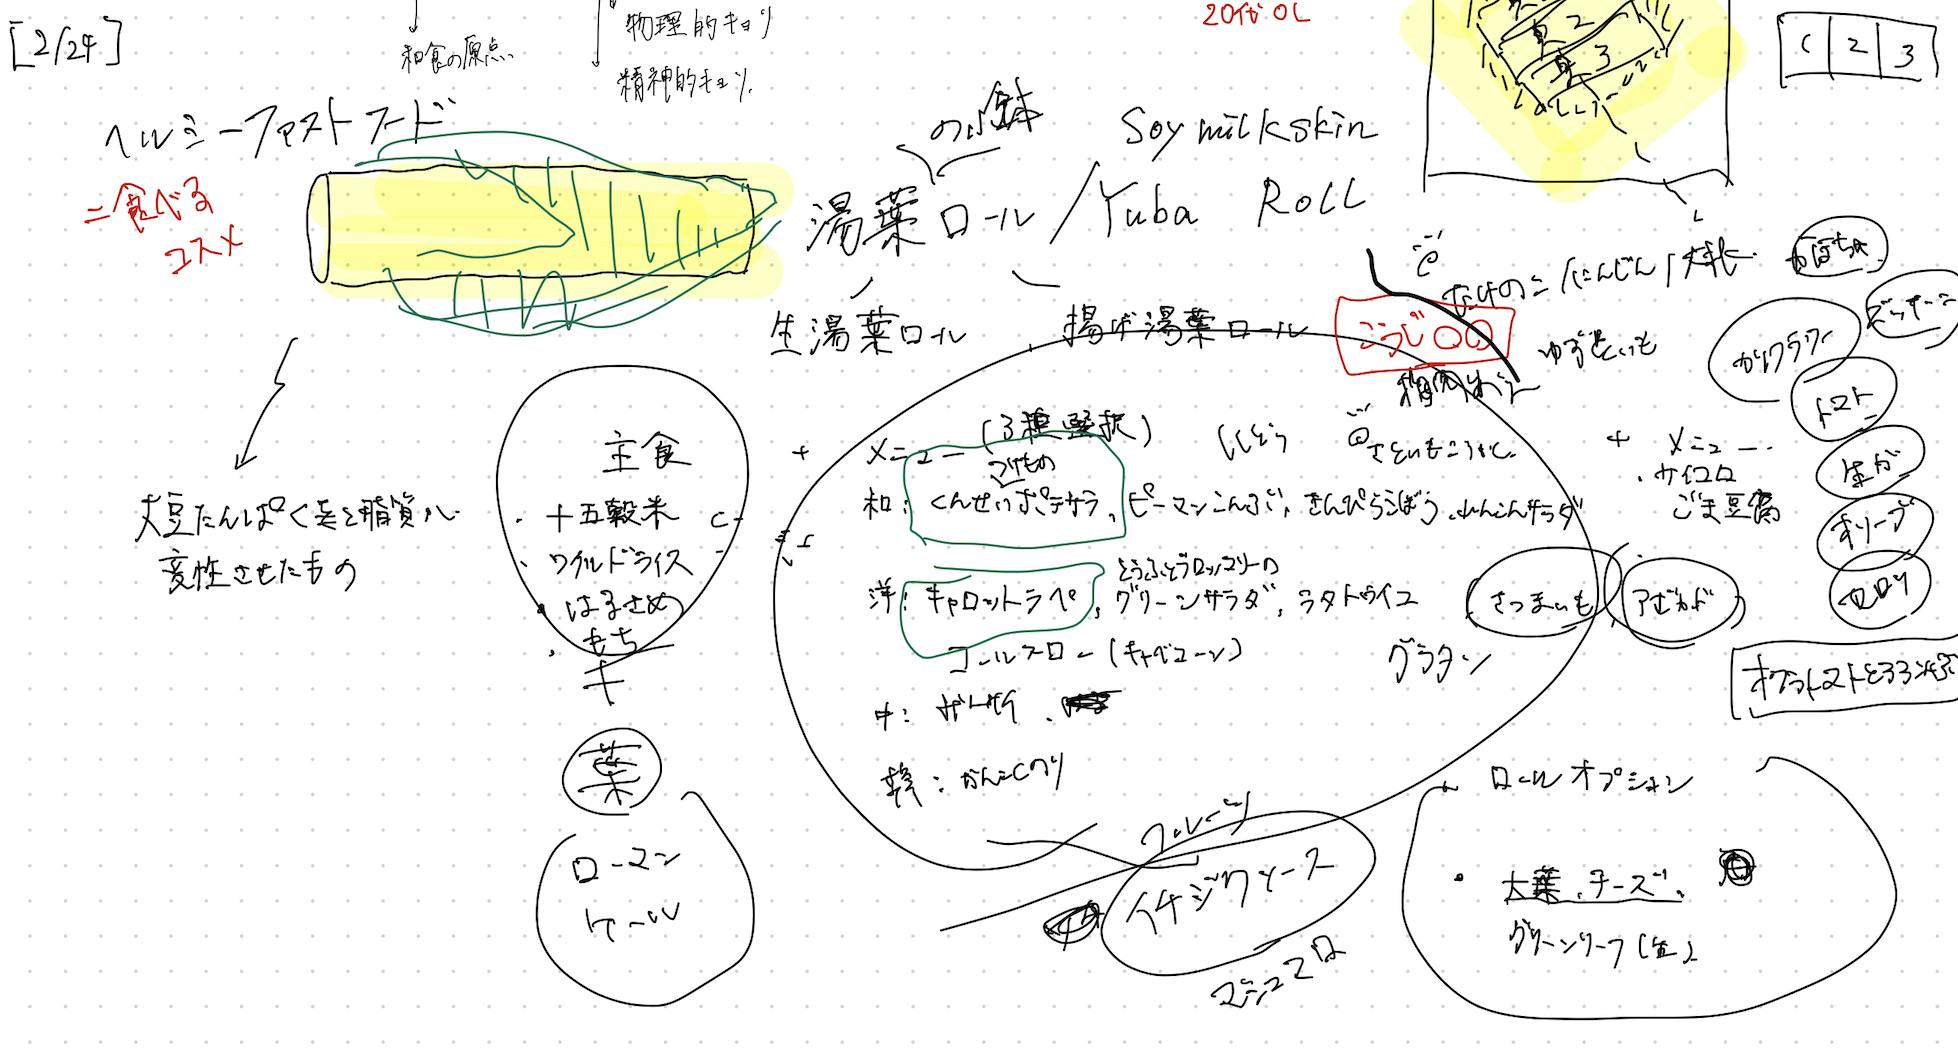 [2/24]
和食の原点
物理的キョリ
精神的キョリ
20代OL
1 2 3
2
3
ヘルシーファストフード
=食べる
コスメ
Soymilkskin
湯葉ロール/Yuba ROLL
生湯葉ロール
揚げ湯葉ロール
こうじ〇〇
たけのこ/にんじん/
かぼちゃ
ズッキーニ
カリフラワー
トマト
生が
オリーブ
セロリ
主食
・十五穀米
・ワイルドライス
・はるさめ
・もち
+
葉
ローマン
ケール
大豆たんぱく質と脂質が
変性させたもの
+
メニュー(3種選択)
ししとう
つけもの
和:くんせいポテサラ,ピーマンこんぶ,きんぴらごぼう,れんこんサラダ
洋:キャロットラペ,グリーンサラダ,ラタトゥイユ
コールスロー(キャベコーン)
グラタン
さつまいも
アボカド
中:ザーサイ
韓:かんこくのり
+メニュー
・サイコロ
ごま豆腐
フルーツ
イチジクソース
マシュマロ
ロールオプション
・大葉,チーズ,
グリーンリーフ(生)